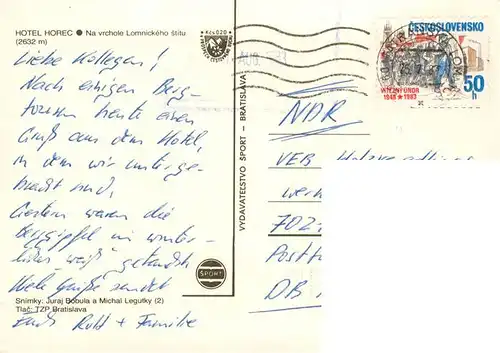 HOTEL HOREC ● Na vrchole Lomnického štítu
(2632 m)
Liebe Kollegen!
Nach einigen Berg-
touren heute einen
Gruß aus dem Hotel,
in dem wir unterge-
bracht sind.
Gestern waren die
Berggipfel in winter-
liches "weiß" getaucht.
Viele Grüße sendet
Snímky: Juraj Bobula a Michal Legutky (2)
Tlač: TZP Bratislava
Euch Ruth + Familie
VYDAVATEĽSTVO ŠPORT – BRATISLAVA
ŠPORT
ČESKOSLOVENSKO
VÍTĚZNÝ ÚNOR
1948 ★ 1983
50 h
AUG.
NDR
VEB
702
Postf
DB